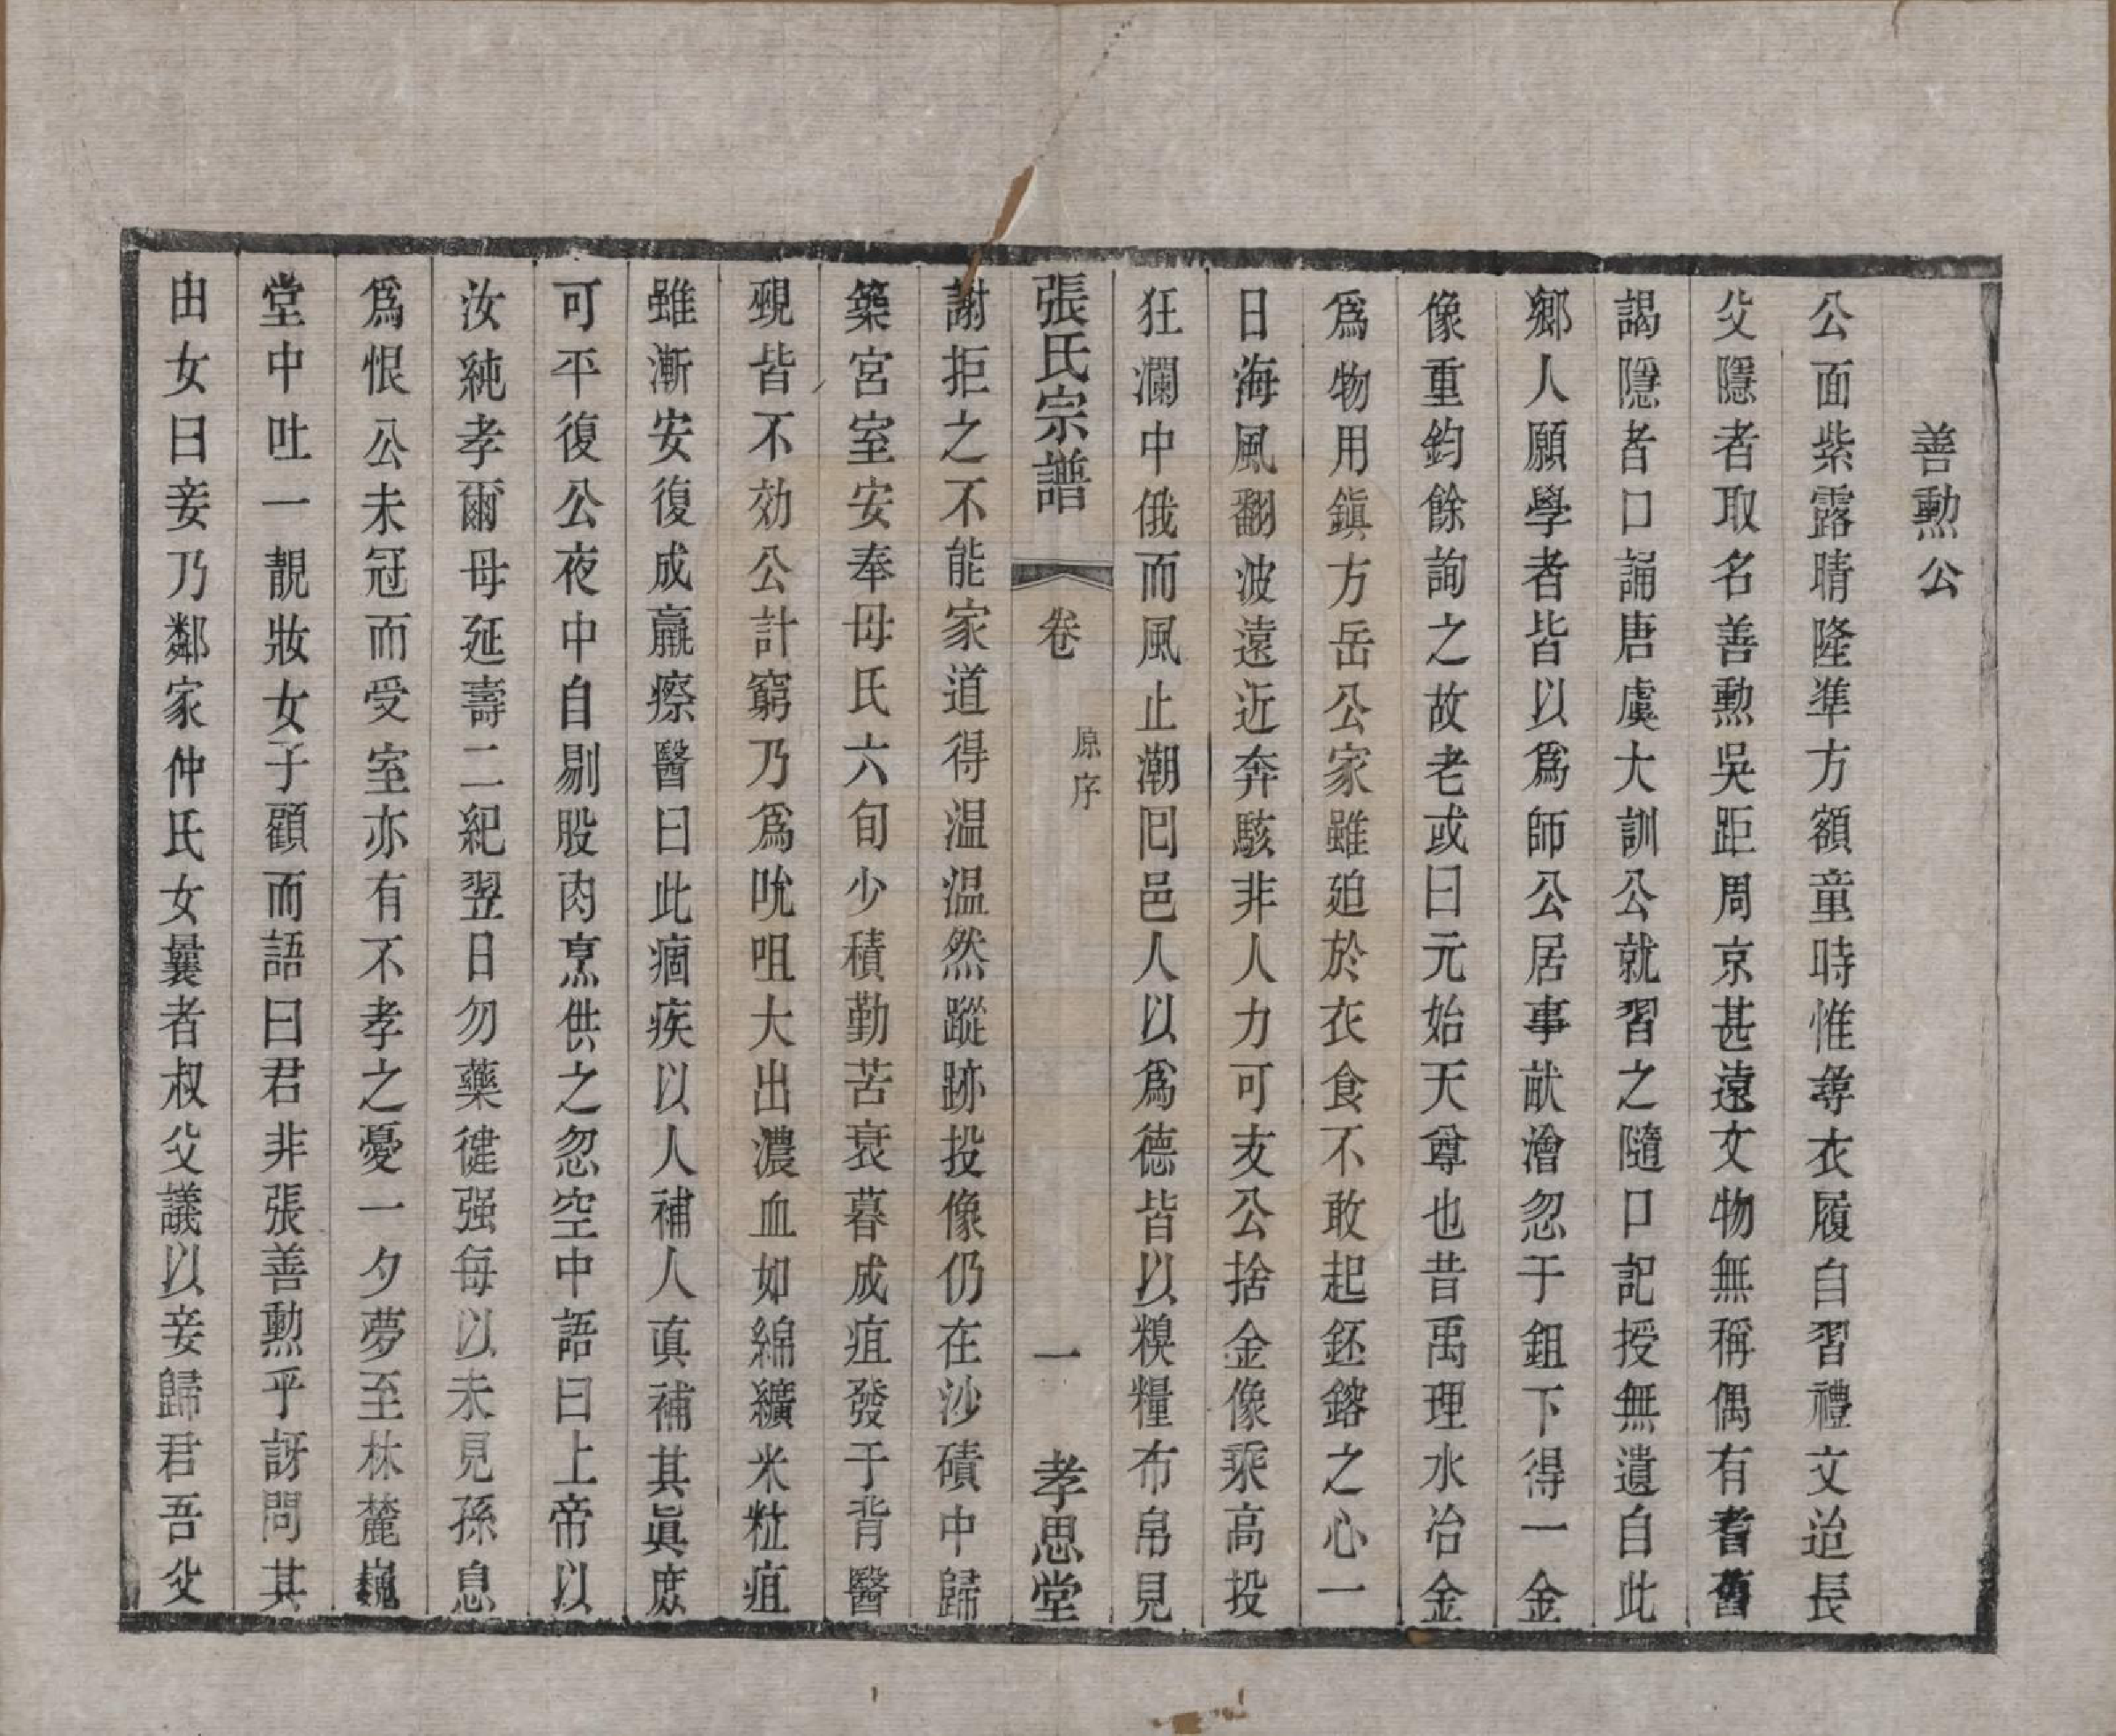 善勲公
公面紫露晴隆準方額童時惟尋衣履自習禮文迨長
父隱者取名善勲吳距周京甚遠文物無稱偶有耆舊
謁隱者口誦唐虞大訓公就習之隨口記授無遺自此
鄉人願學者皆以爲師公居事畝澮忽于鉏下得一金
像重鈞餘詢之故老或曰元始天尊也昔禹理水冶金
爲物用鎭方岳公家雖廹於衣食不敢起鉟鎔之心一
日海風翻波遠近奔駭非人力可支公捨金像乘高投
狂瀾中俄而風止潮囘邑人以爲德皆以糗糧布帛見
張氏宗譜 卷 原序 一 孝思堂
謝拒之不能家道得温温然蹤跡投像仍在沙磧中歸
築宮室安奉母氏六旬少積勤苦衰暮成疽發于背醫
覡皆不効公計窮乃爲吮咀大出濃血如綿纊米粃疽
雖漸安復成羸瘵醫曰此痼疾以人補人眞補其眞庶
可平復公夜中自剔股肉烹供之忽空中語曰上帝以
汝純孝爾母延壽二紀翌日勿藥徤强每以未見孫息
爲恨公未冠而受室亦有不孝之憂一夕夢至林麓巍
堂中吐一靚妝女子顧而語曰君非張善勲乎訝問其
由女曰妾乃鄰家仲氏女曩者叔父議以妾歸君吾父